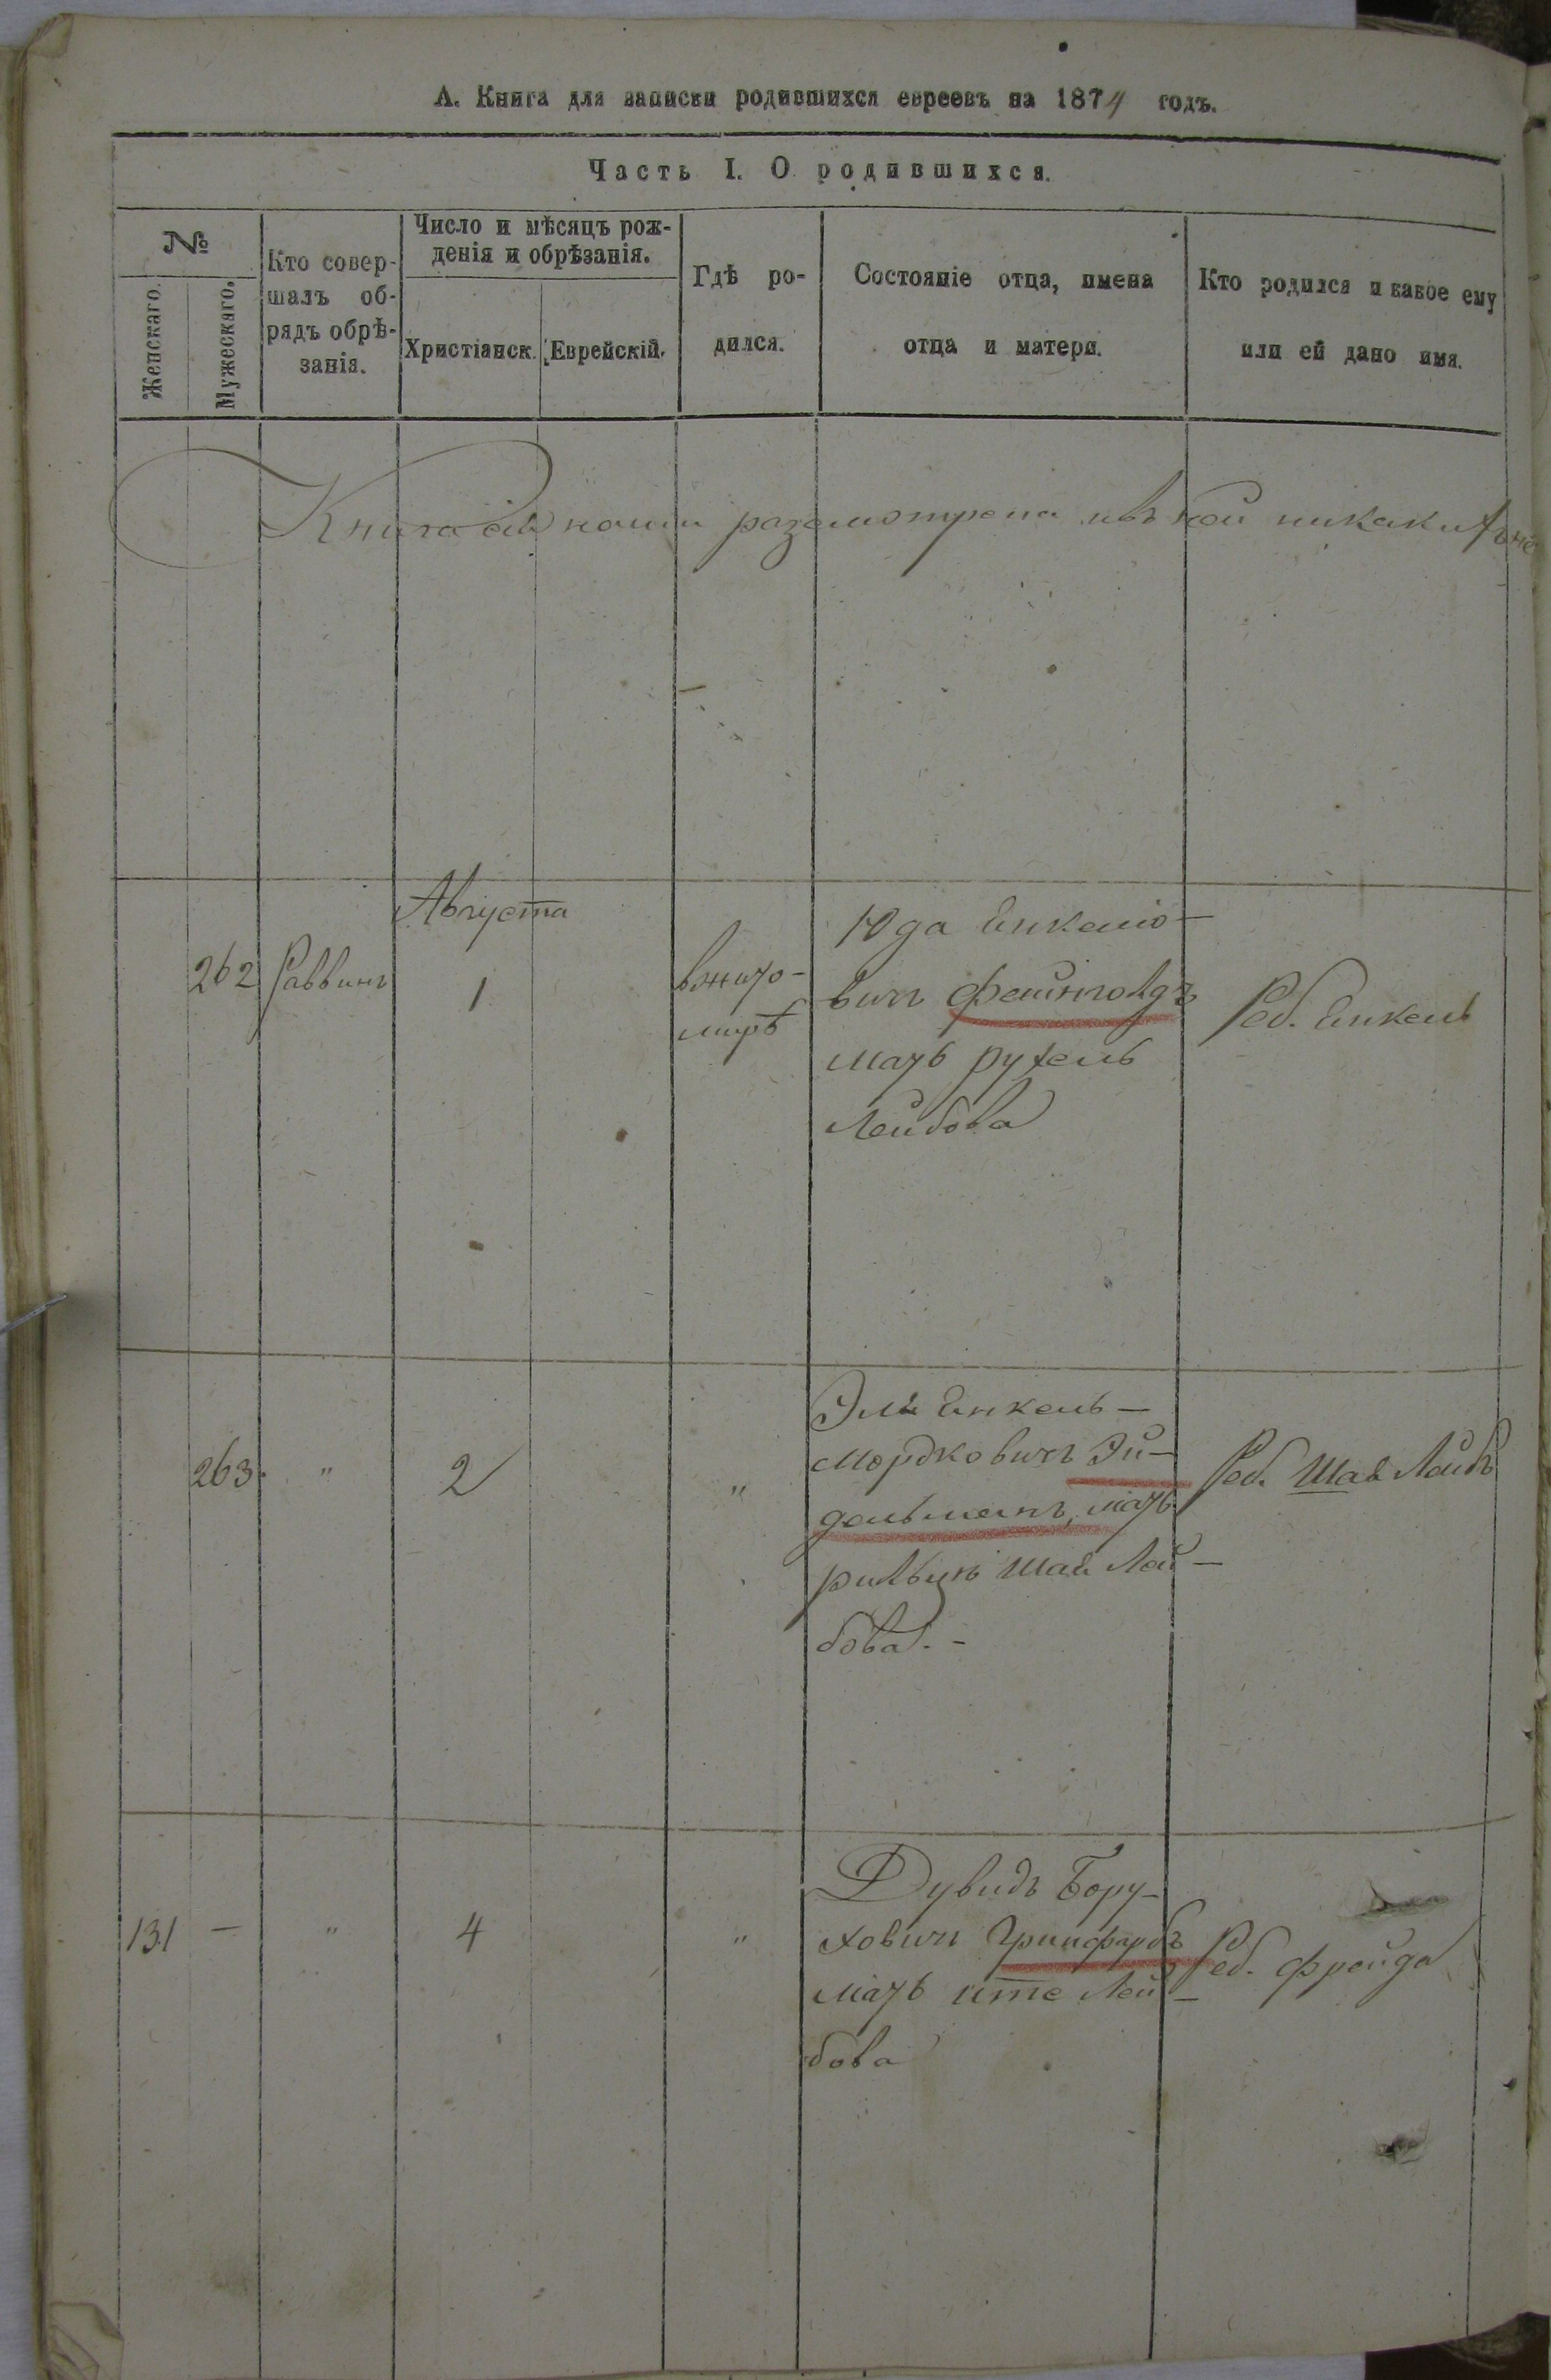 А. Книга для записки родившихся евреевъ на 1874 годъ.
Часть I. О родившихся.
№
Женскаго.
Мужескаго.
Кто совер-
шалъ об-
рядъ обрѣ-
занія.
Число и мѣсяцъ рож-
денія и обрѣзанія.
Христіанск.
Еврейскій.
Гдѣ ро-
дился.
Состояніе отца, имена
отца и матери.
Кто родился и какое ему
или ей дано имя.
Книга сія нами разсмотрена и въ ней никакихъ не
Августа
262 Раввинъ 1
в Жито-
мирѣ
Юда Енкелио-
вичъ Фейнголдъ
мать Рухель
Лейбова
Реб. Енкель
263. " 2 "
Эль Енкель-
Мордковичъ Эй-
дельманъ, мать
Шая Лей-
бова. -
Реб. Шая Лейбъ
131 - " 4 "
Дувидъ Бору-
ховичъ Гринфарбъ
мать Ите Лей-
бова
Реб. Фрейда